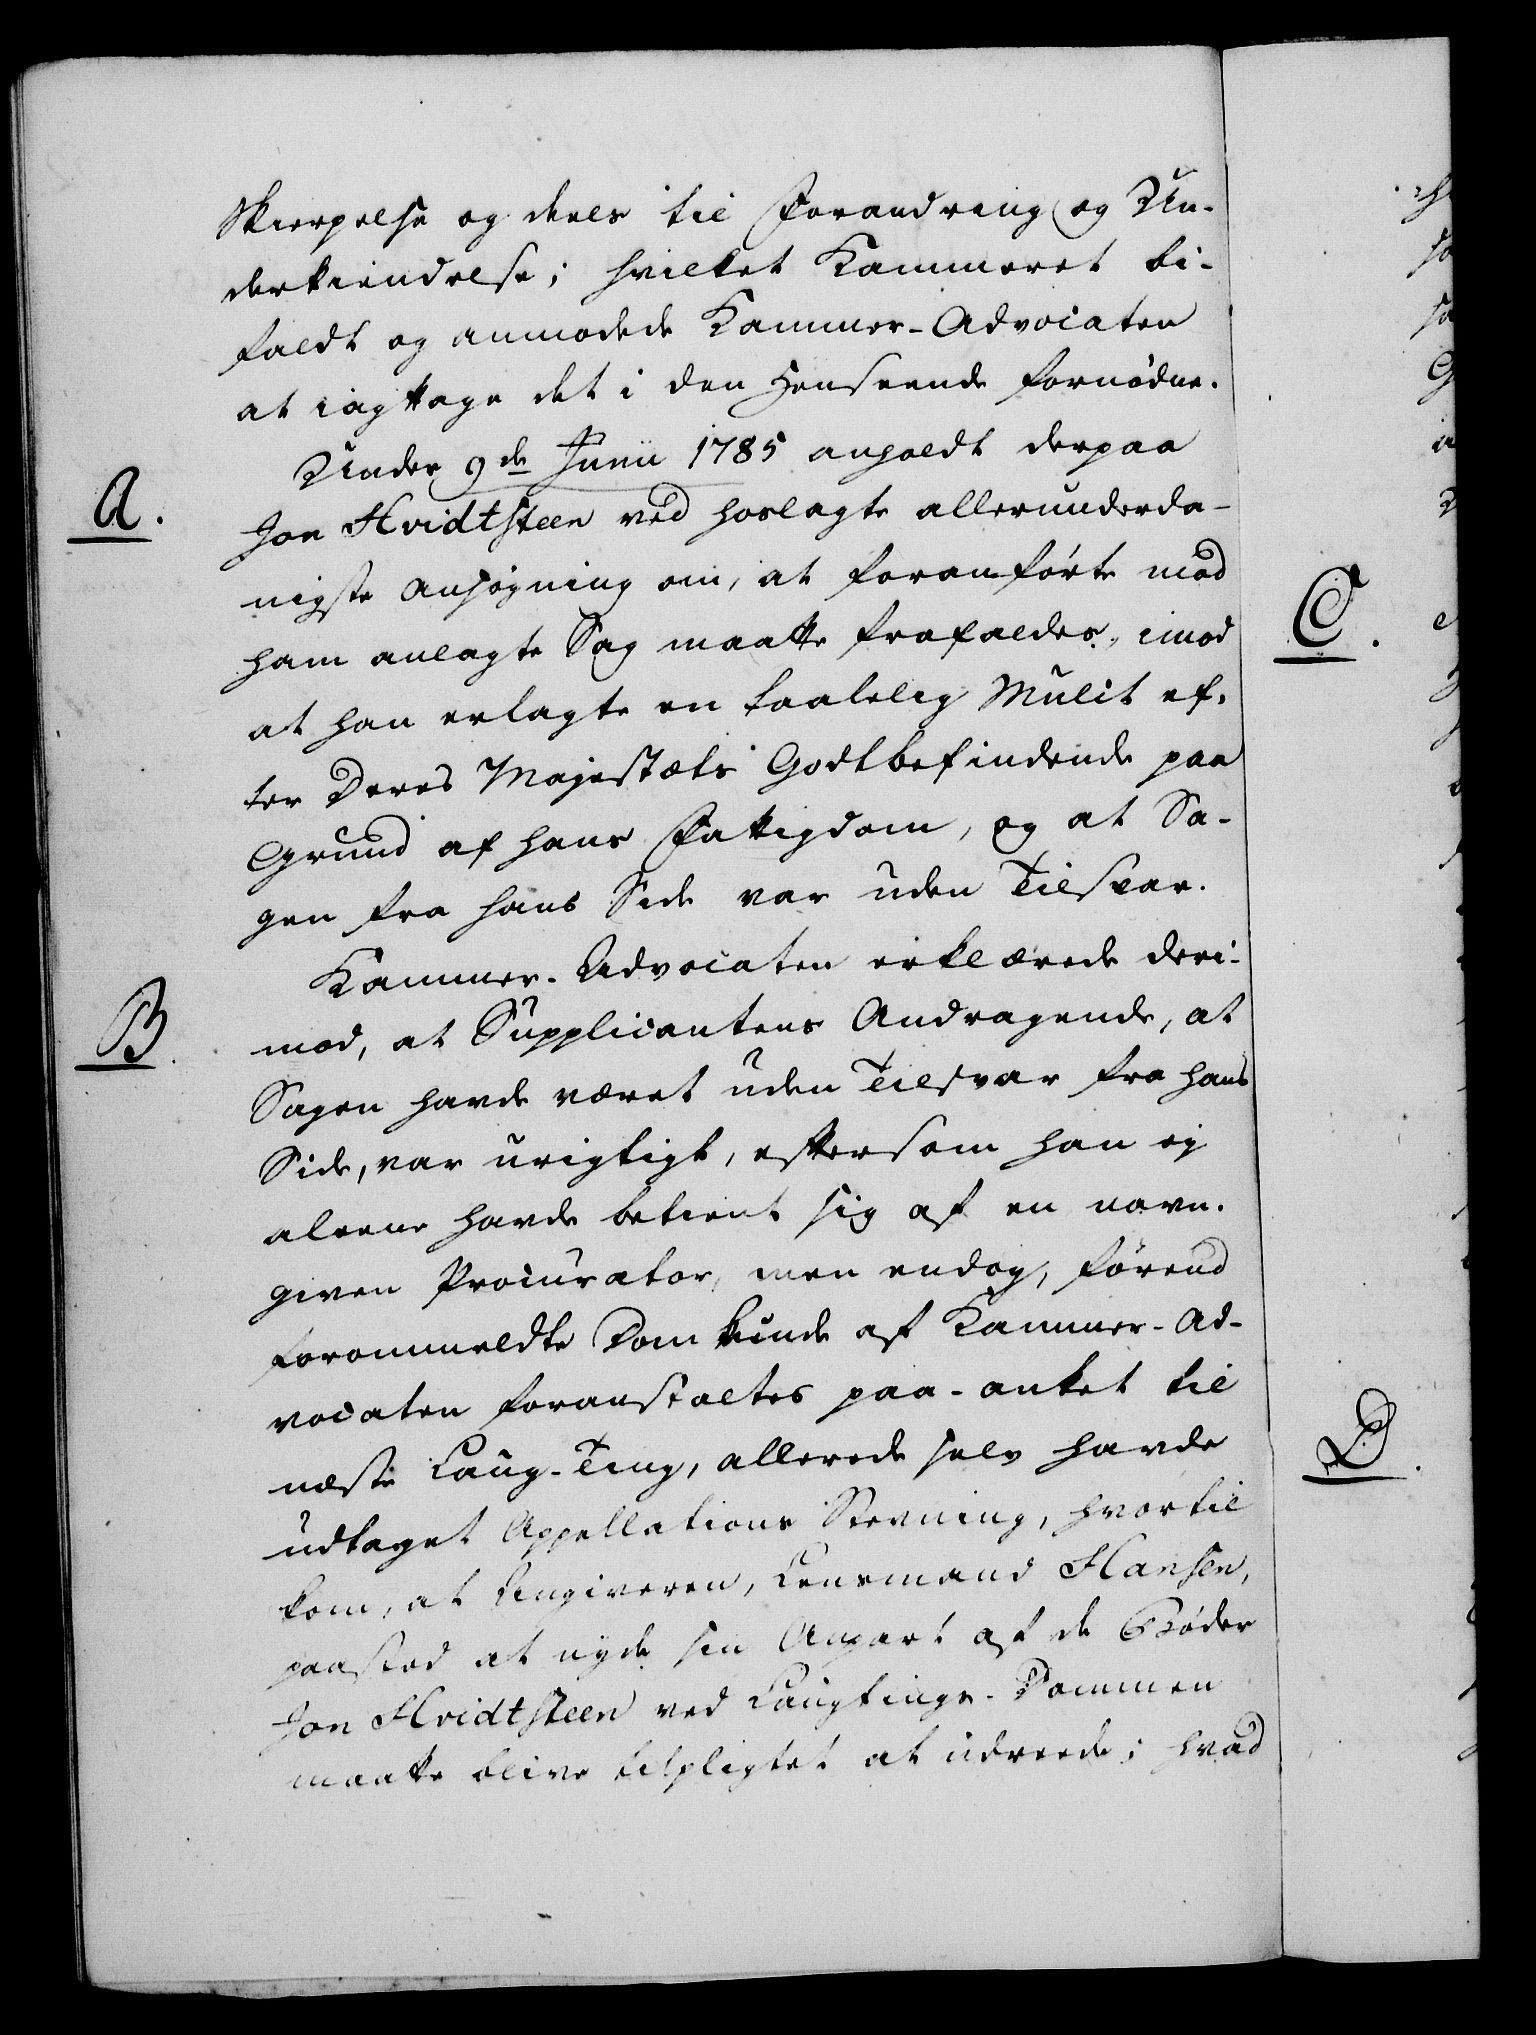 Skierpelse og deels til Forandring og Un-
derkiendelse; hvilket Kammeret bi-
faldt og anmodede Kammer-Advocaten
at iagttage det i den Henseende fornødne.
Under 9de Junii 1785 anholdt derpaa
A.
Jon Hvidtsteen ved hoslagte allerunderda-
nigste Ansøgning om, at foranførte mod
ham anlagte Sag maatte frafaldes, imod
C.
at han erlagte en taalelig Mulct ef-
ter Deres Majestæts Godtbefindende paa
Grund af hans Fattigdom, og at Sa-
gen fra hans Side var uden Tilsvar.
Kammer-Advocaten erklærede deri-
B.
mod, at Supplicantens Andragende, at
Sagen havde været uden Tilsvar fra hans
Side, var urigtigt, eftersom han ej
aleene havde betient sig af en navn-
given Procurator, men endog, førend
forommeldte Dom kunde af Kammer-Ad-
vocaten foranstaltes paa-anket til
D.
næste Laug-Ting, allerede selv havde
udtaget Appellations Stevning, hvortil
kom, at Angiveren, Lensmand Hansen,
paastod at nyde sin Anpart af de Bøder
Jon Hvidtsteen ved Laugtings-Dommen
maatte blive tilpligtet at udreede; hvad